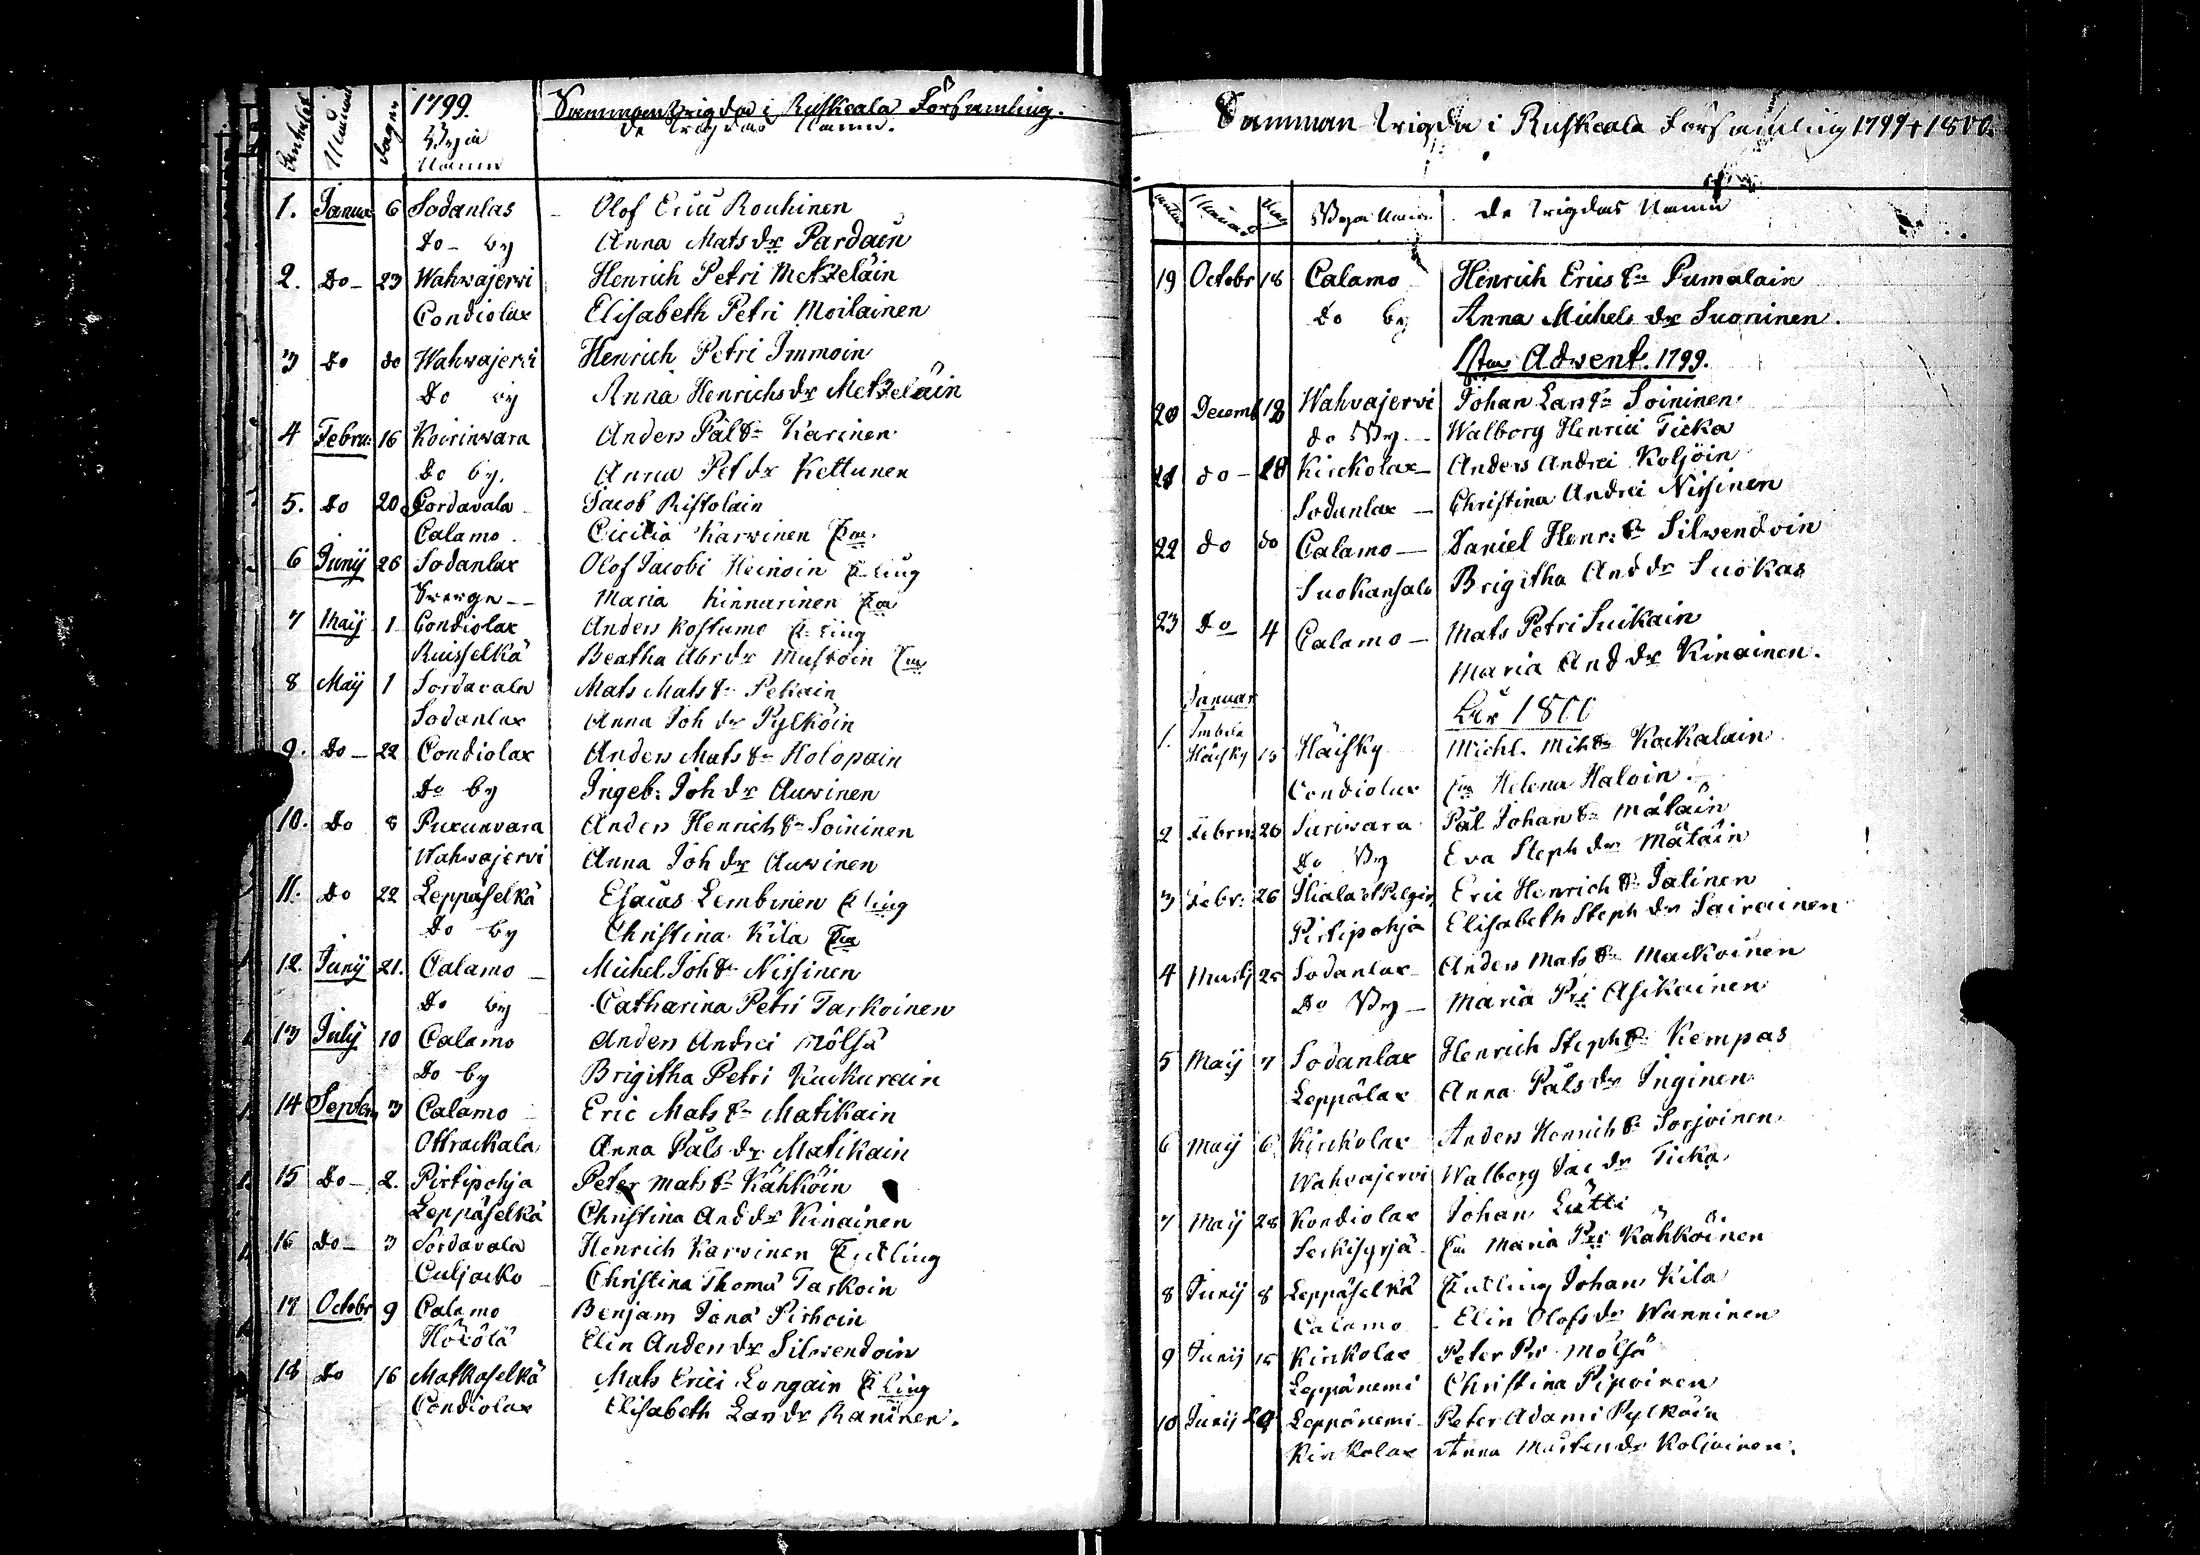 1799. Sammanwigda i Ruskeala Församling.
Antalet Månad dagen Byia Namn de wigdas Namn.
1. Januar 6 Sodanlas Olof Erici Rouhinen
Do by Anna Mats dr Pardain
2. Do 23 Wahwajerwi Henrich Petri Metzeläin
Condiolax Elisabeth Petri Moilainen
3 Do do Wahwajerwi Henrich Petri Immoin
Do by Anna Henrichs dr Metzeläin
4 Febru: 16 Koirinwara Anders Pål Sn Karinen
Do by. Anna Pet dr Kettunen
5. Do 20 Sordavala Jacob Ristolain
Calamo Cicilia Karwinen
6 Junij 26 Sodanlax Olof Jacobi Heinoin
Maria Kinnarinen
7 Maij 1 Condiolax Anders Kostamo
Ruisselkä Beatha Abr dr Mustoin
8 Maij 1 Sordavala Mats Mats Sn Pekain
Sodanlax Anna Joh dr Pylköin
9. Do 22 Condiolax Anders Mats Sn Holopain
Do by Ingeb: Joh dr Auwinen
10. Do 8 Puxunvara Anders Henrich Sn Soininen
Wahwajervi Anna Joh dr Auwinen
11. Do 22 Leppäselkä Esaias Lembinen
Do by Christina Kila
12. Junij 21. Calamo Michel Joh Sn Nissinen
Do by Catharina Petri Tarkoinen
13 July 10 Calamo Anders Andrei Mölsä
Do by Brigitha Petri Kuckurain
14 Septem 3 Calamo Eric Mats Sn Matikain
Ottrackala Anna Påls dr Matikain
15 Do 2. Pirtipohja Peter Mats Sn Kähköin
Leppäselkä Christina And dr Kinainen
16 Do 3 Sordavala Henrich Karwinen
Culjacko Christina Thoma Tarkoin
17 Octobr 9 Calamo Benjam Jona Pirhoin
Hötölä Elin Anders dr Silwendoin
18 Do 16 Matkaselkä Mats Erici Longain
Condiolax Elisabeth Lars dr Raninen.
Samman wigda i Ruskeala Församling 1799 + 1800.
Byia Namn de wigdas Namn
19 Octobr 18 Calamo Henrich Erics Sn Pumalain
do by Anna Michels dr Suoninen.
1sta Adwent. 1799.
20 Decemb 18 Wahvajervi Johan Lars Sn Soininen
do By Walborg Henrici Ticka
21 do 28 Kirckolax Anders Andrei Koljöin
Sodanlax Christina Andrei Nissinen
22 do do Calamo Daniel Henr: Sn Silwendoin
Suokansalo Brigitha And dr Suokas
23 Do 4 Calamo Mats Petri Suikain
Maria And dr Kinainen.
Januar
År 1800
1. Imbela Häisky 15 Häisky Michl. Mih Sn Kaikalain
Condiolax Helena Haloin.
2 Febru: 26 Suriwara Pål Johan Sn Mätäin
Do By Eva Steph dr Mätäin
3 Febr: 26 Eric Henrich Sn Jalinen
Pirtipohja Elisabeth Steph dr Sairainen
4 Martij 25 Sodanlax Anders Mats Sn Mackoinen
Do By Maria Pri Asikainen
5 Maij 7 Sodanlax Henrich Steph Sn Kempas
Leppälax Anna Påls dr Inginen
6 Maij 6 Kirckolax Anders Henrich Sn Sorjoinen
Wahvajervi Walborg Jac dr Ticka
7 Maij 28 Kondiolax Johan Lätti
Serkisyrjä Maria Pri Kähköinen
8 Junij 8 Leppäselkä Johan Kila
Calamo Elin Olofs dr Wanninen
9 Junij 15 Kirckolax Peter Pri Mölsä
Leppänemi Christina Pipoinen
10 Junij 29 Leppänemi Peter Adami Pylköin
Kirkolax Anna Mårtens dr Koljoinen.